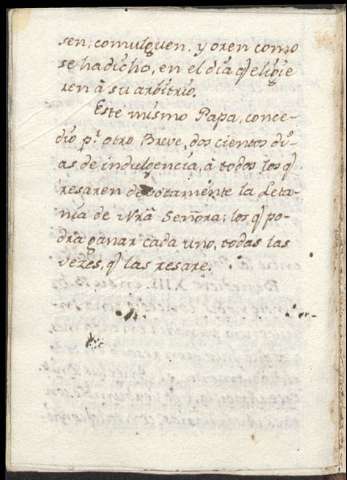 sen, comulguen, y oren como
se ha dicho, en el dia q̃ eligie
ren à su arbitrio.
Este mismo Papa, conce-
dio pr. otro Breve, dos cientos di-
as de indulgencia, à todos los q̃
resaren devotamente la Leta-
nia de Nrã Señora; los q̃ po-
drà ganar cada uno, todas las
vezes, q̃ las resare.